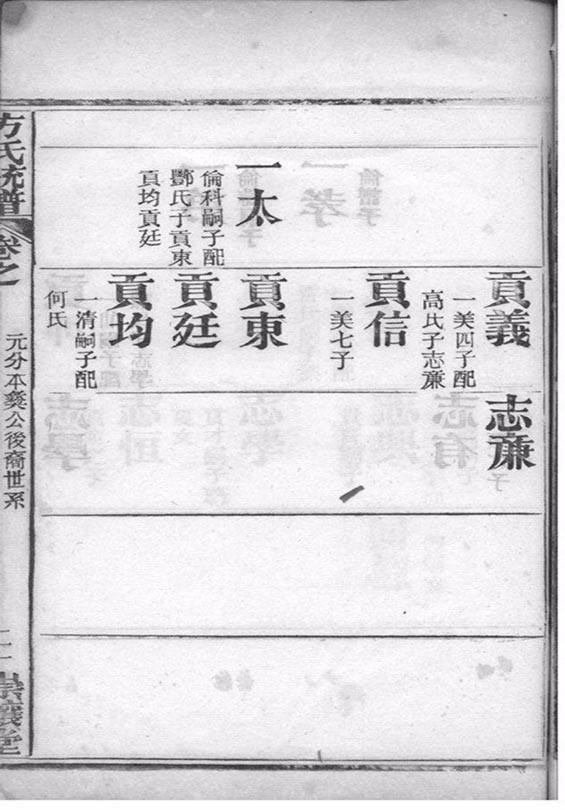 一太
倫科嗣子配
酆氏子貢東
貢均貢廷
貢義
一美四子配
高氏子志蔗
貢信
一美七子
貢東
貢廷
貢均
一清嗣子配
何氏
志蔗
方氏統譜
卷之
元分本襄公後裔世系